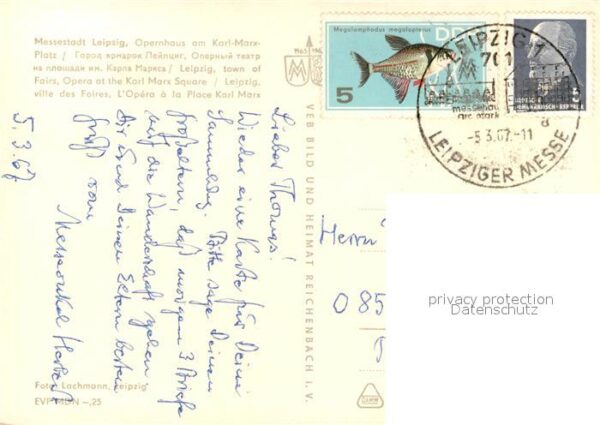 Messestadt Leipzig, Opernhaus am Karl-Marx-
Platz / Город ярмарок Лейпциг, Оперный театр
на площади им. Карла Маркса / Leipzig, town of
Fairs, Opera at the Karl Marx Square / Leipzig,
ville des Foires, L'Opéra à la Place Karl Marx
5.3.67
Lieber Thomas!
Wieder eine Karte für Deine
Sammlung. Bitte sage Deinen
Großeltern, daß morgen 3 Briefe
auf die Wanderschaft gehen
Dir und Deinen Eltern besten
Gruß vom
Messeonkel Herbert
Foto: Lachmann, Leipzig
EVP MDN -,25
VEB BILD UND HEIMAT REICHENBACH I. V.
Megalamphodus megalopterus
DDR
5
LEIPZIG 11
701
-5.3.67.-11
LEIPZIGER MESSE
Herrn
085
privacy protection
Datenschutz